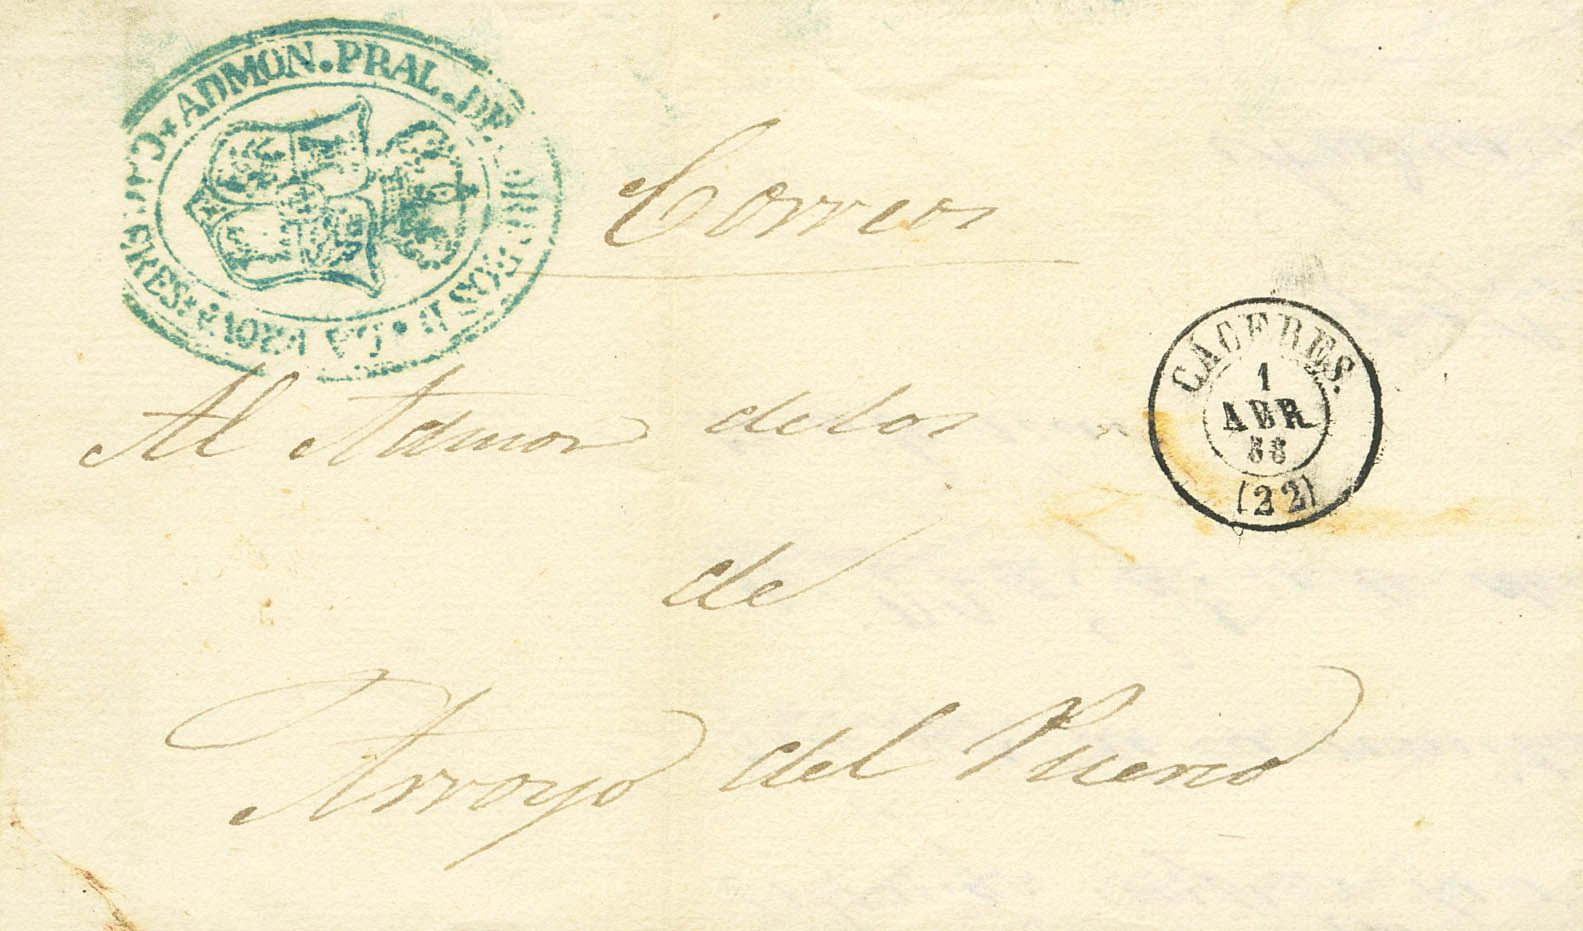 ADMON. PRAL. DE CORREOS D LA PROVA * CACERES *
Correos
CÁCERES.
1
ABR
58
(22)
Al Admor de los
de
Arroyo del Puerco